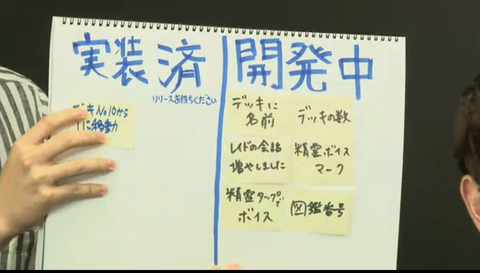 実装済
リリースお待ちください
デッキNo10から
に移動
開発中
デッキに
名前
デッキの数
レイドの会話
増やしました
精霊ボイス
マーク
精霊タップで
ボイス
図鑑番号